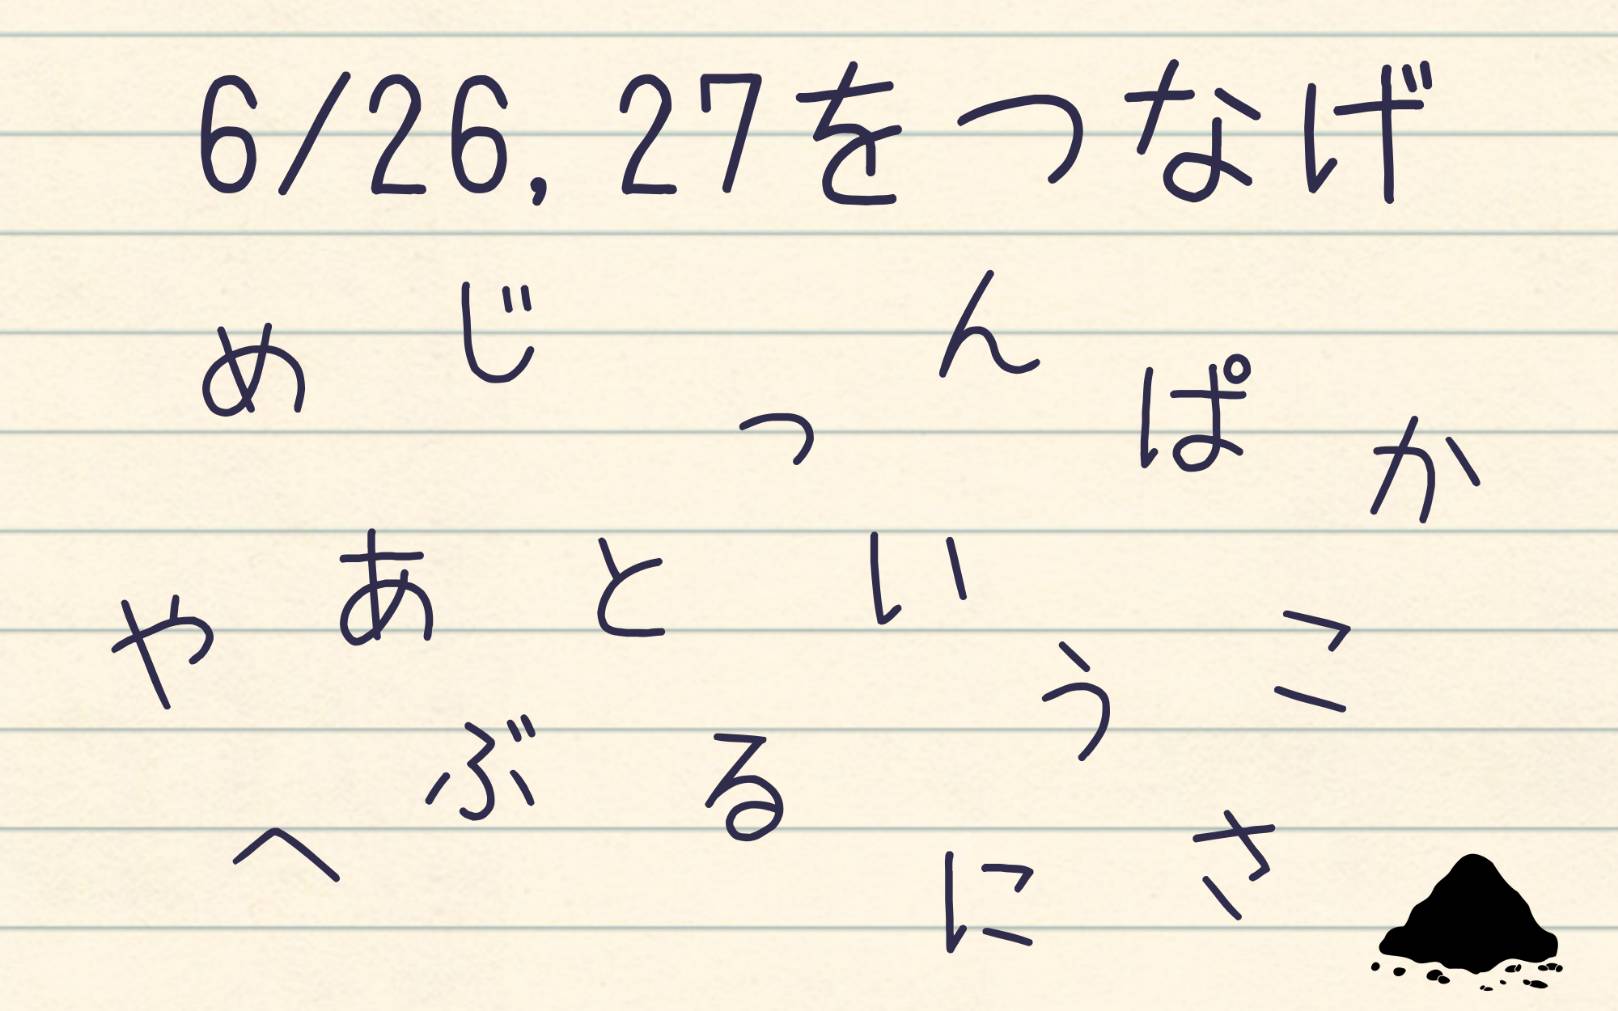 6/26, 27をつなげ
め じ っ ん ぱ か
や あ と い う こ
へ ぶ る に さ